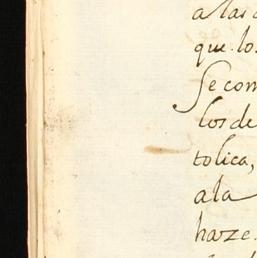 a las
que los
Se com
los de
tolica,
a la
haze.